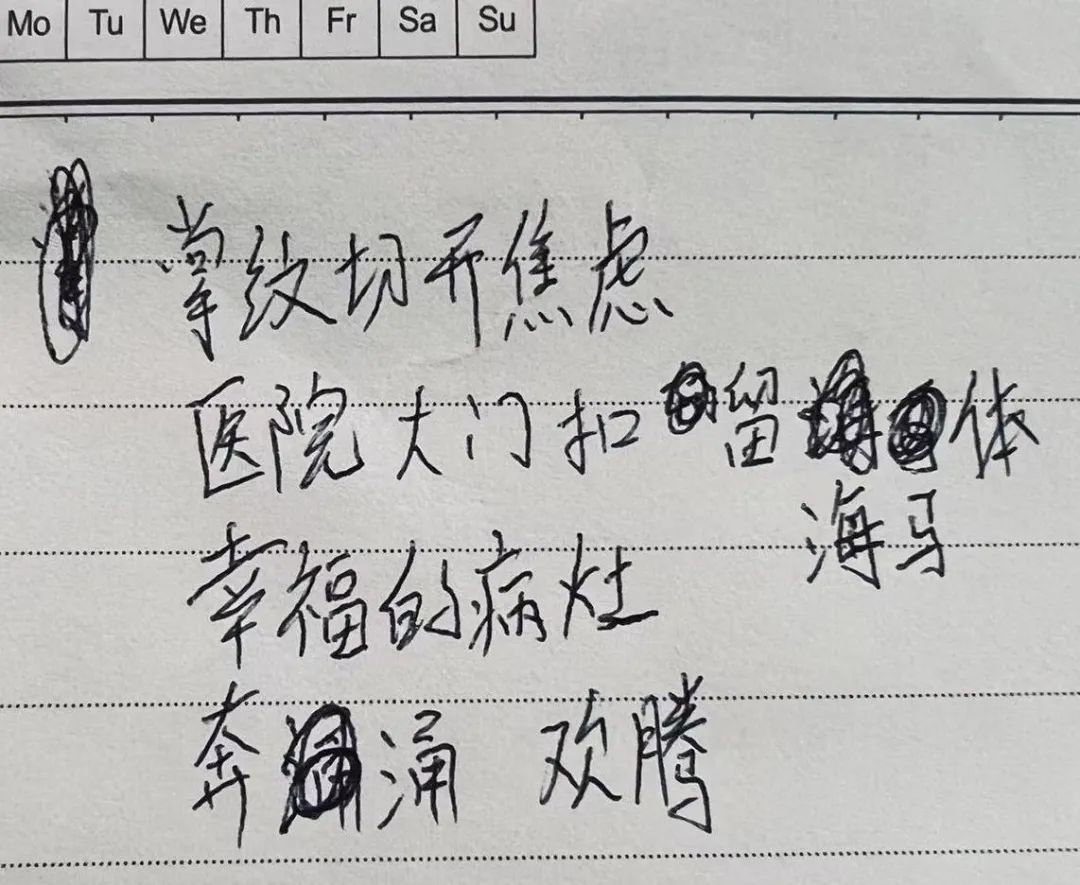 Mo Tu We Th Fr Sa Su
掌纹切开焦虑
医院大门扣留海马体
幸福的病灶
奔涌 欢腾